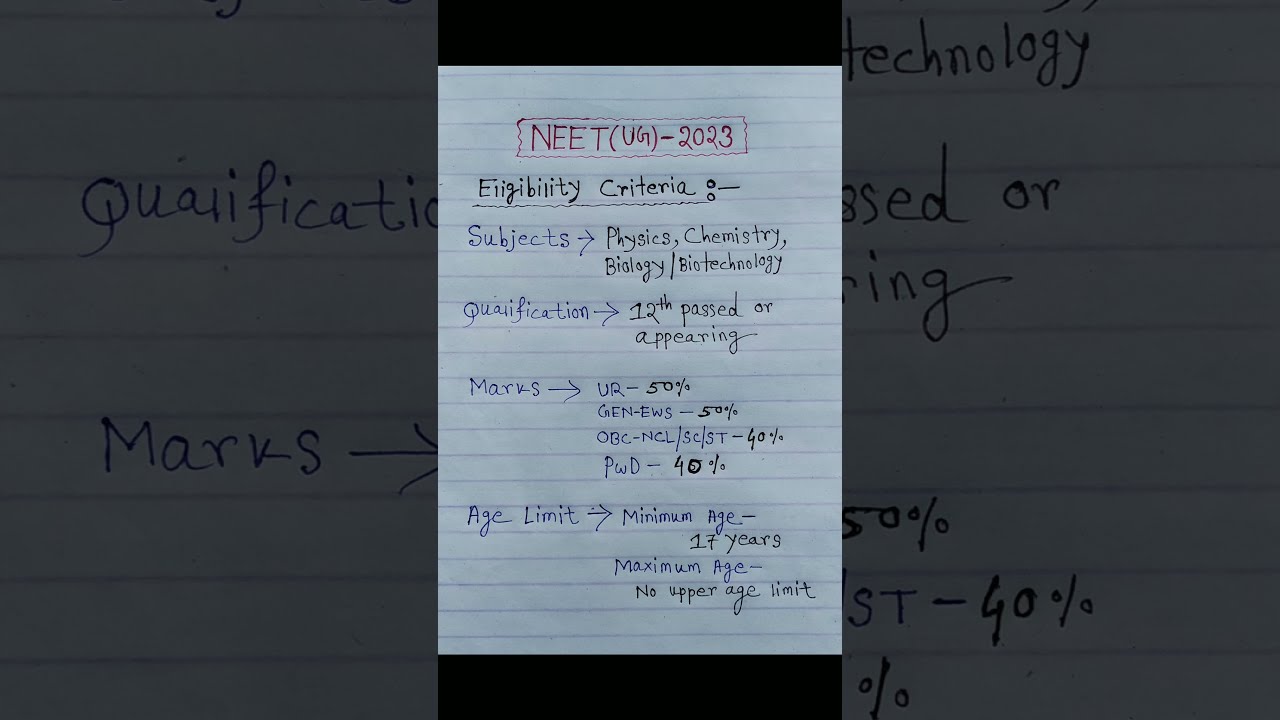 NEET(UG)-2023
Eligibility Criteria :-
Subjects → Physics, Chemistry,
Biology/Biotechnology
Qualification → 12th passed or
appearing
Marks → UR - 50%
GEN-EWS - 50%
OBC-NCL/SC/ST - 40%
PwD - 40%
Age Limit → Minimum Age-
17 years
Maximum Age-
No upper age limit
technology
Qualificatio
ssed or
ring
Marks →
50%
/ST - 40%
%